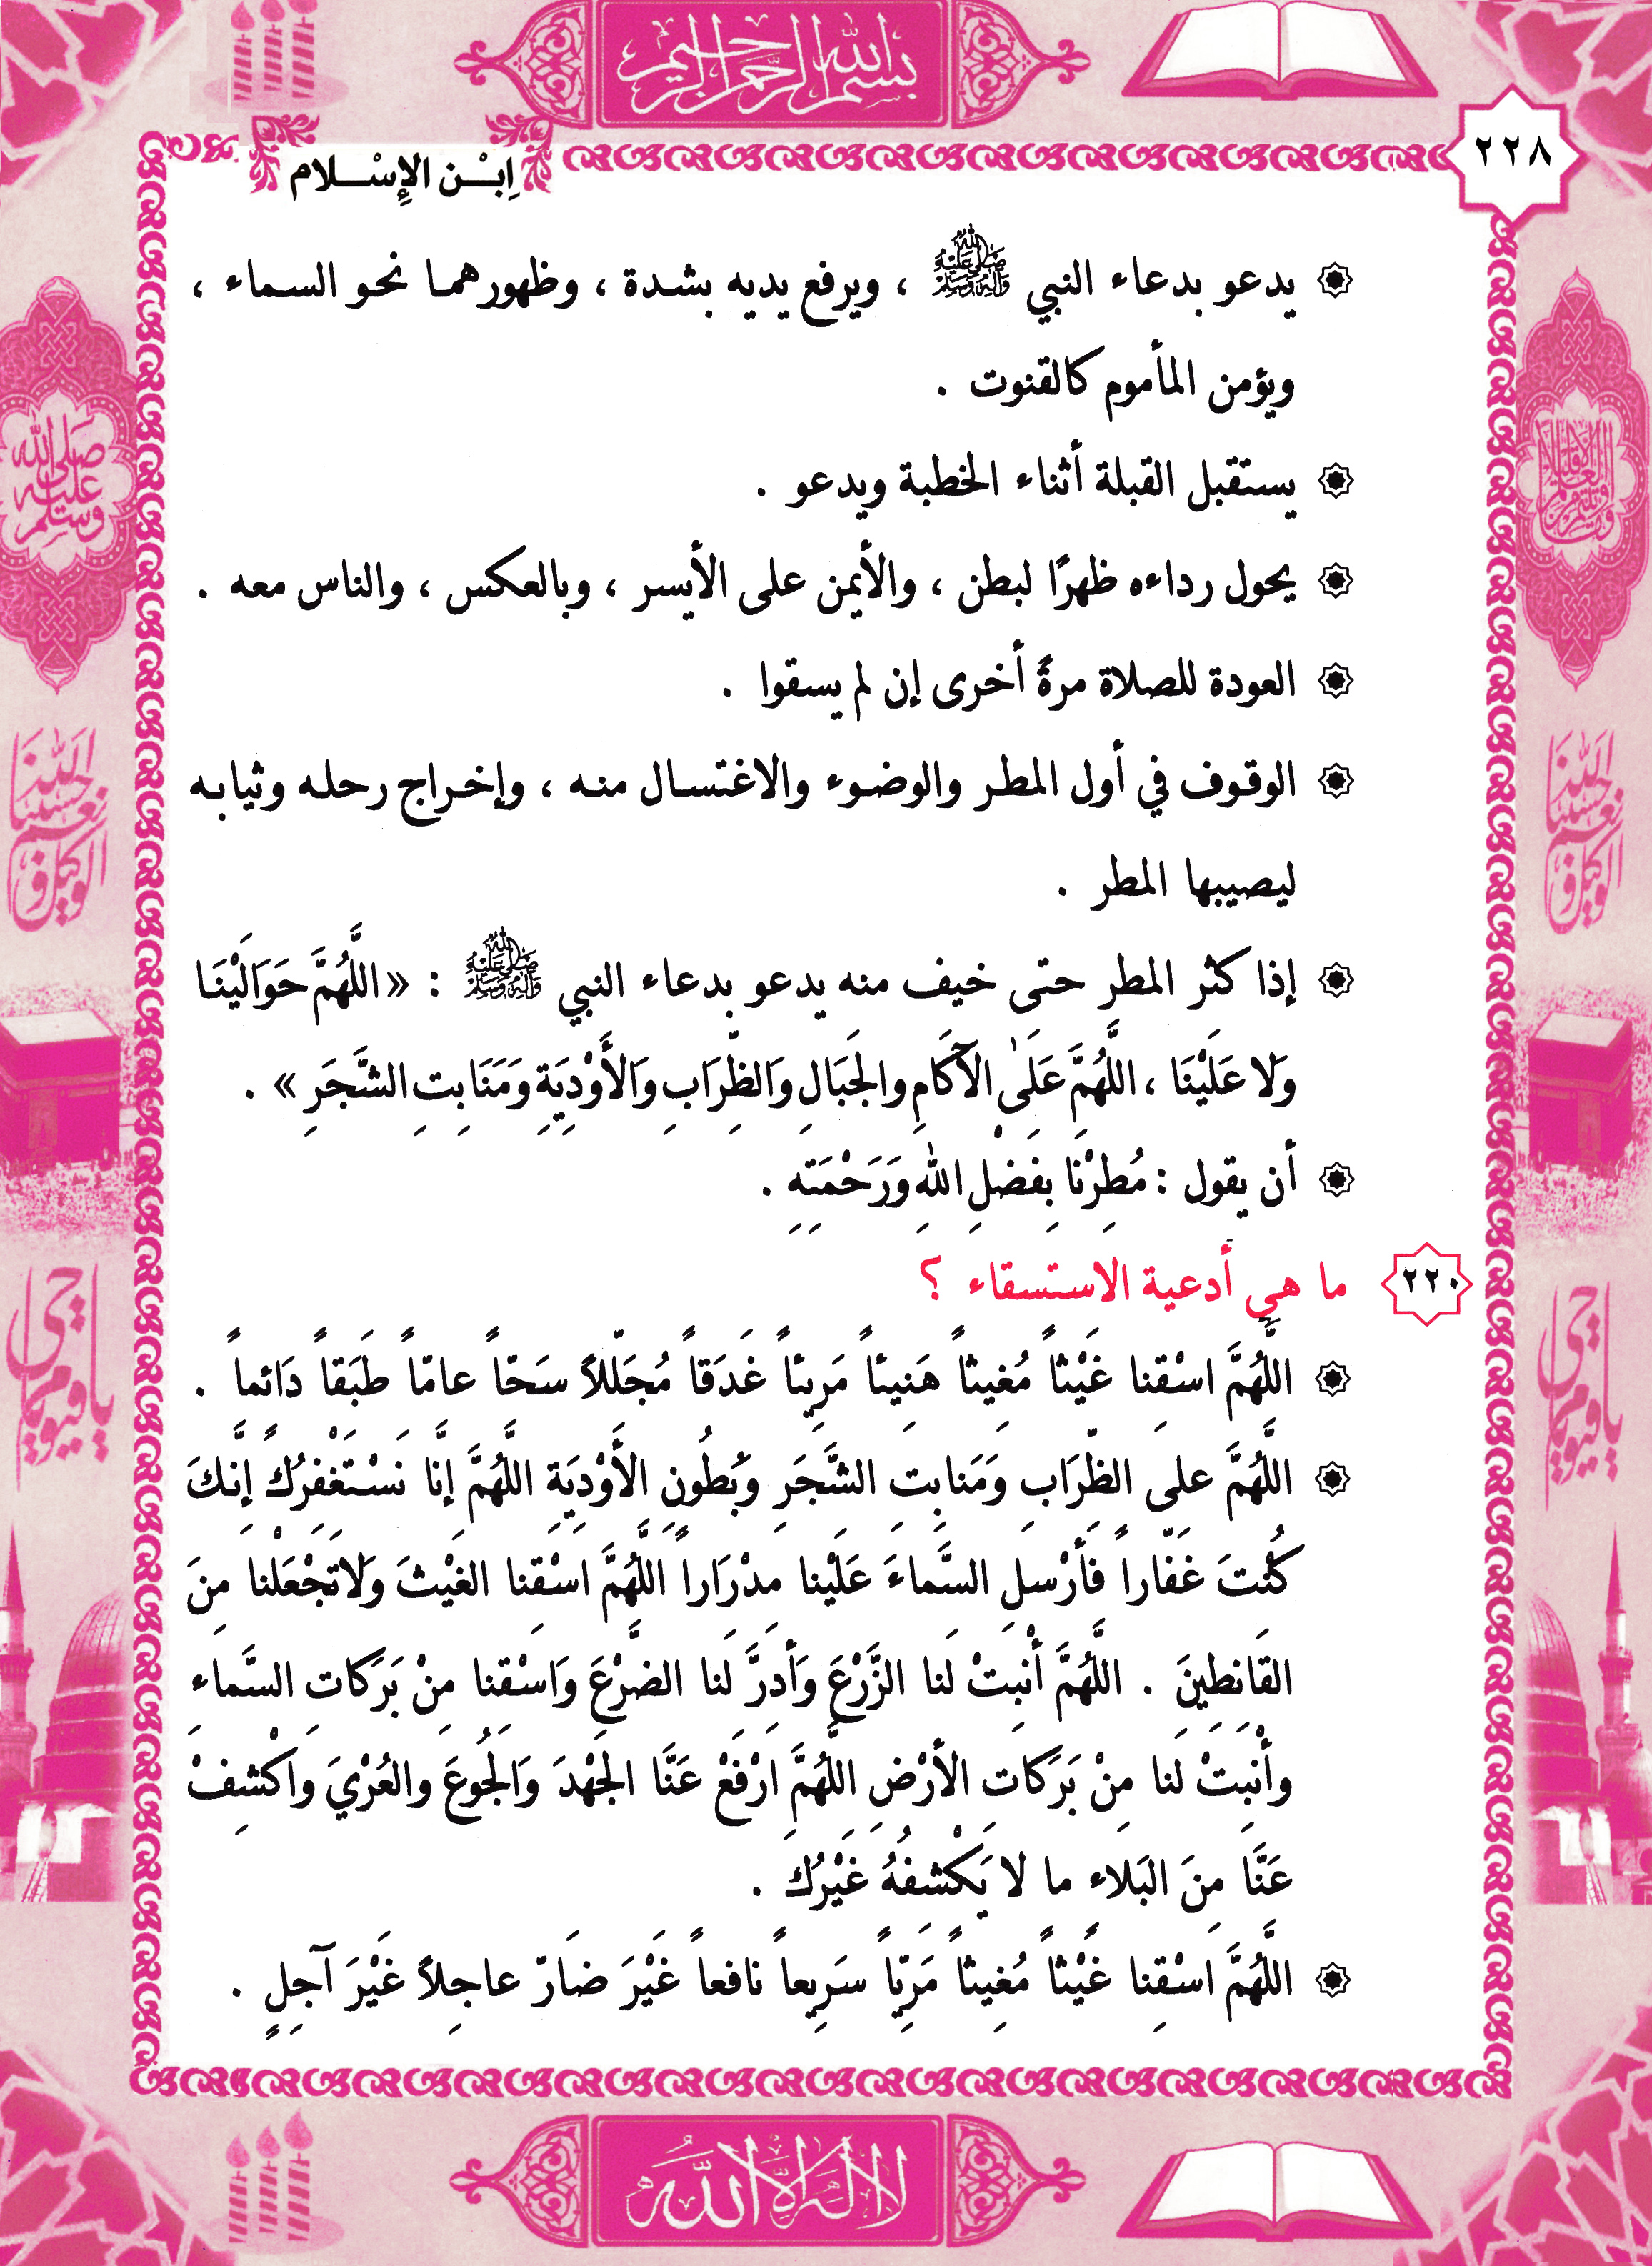 بسم الله الرحمن الرحيم
٢٢٨
اِبْـن الإِسْـلام
يدعو بدعاء النبي ﷺ ، ويرفع يديه بشدة ، وظهورهما نحو السماء ،
ويؤمن المأموم كالقنوت .
يستقبل القبلة أثناء الخطبة ويدعو .
يحول رداءه ظهرًا لبطن ، والأيمن على الأيسر ، وبالعكس ، والناس معه .
العودة للصلاة مرةً أخرى إن لم يسقوا .
الوقوف في أول المطر والوضوء والاغتسال منه ، وإخراج رحله وثيابه
ليصيبها المطر .
إذا كثر المطر حتى خيف منه يدعو بدعاء النبي ﷺ : « اللَّهُمَّ حَوَالَيْنَا
وَلا عَلَيْنَا ، اللَّهُمَّ عَلَىٰ الآكَامِ والجَبَالِ وَالظِّرَابِ وَالأَوْدِيَةِ وَمَنَابِتِ الشَّجَرِ » .
أن يقول : مُطِرْنَا بِفَضْلِ اللهِ وَرَحْمَتِهِ .
٢٢٠ ما هي أدعية الاستسقاء ؟
اللَّهُمَّ اسْقِنا غَيْثاً مُغِيثاً هَنِيئاً مَرِيئاً غَدَقاً مُجَلّلاً سَحّاً عامّاً طَبَقاً دَائماً .
اللَّهُمَّ على الظِّرَابِ وَمَنابِتِ الشَّجَرِ وَبُطُونِ الأَوْدِيَةِ اللَّهُمَّ إنَّا نَسْتَغْفِرُكَ إنَّكَ
كُنْتَ غَفَّاراً فَأَرْسِلِ السَّماءَ عَلَيْنا مِدْرَاراً اللَّهُمَّ اسْقِنا الغَيْثَ وَلاتَجْعَلْنا مِنَ
القَانِطِينَ . اللَّهُمَّ أَنْبِتْ لَنا الزَّرْعَ وَأَدِرَّ لَنا الضَّرْعَ وَاسْقِنا مِنْ بَرَكاتِ السَّماءِ
وأَنْبِتْ لَنا مِنْ بَرَكَاتِ الأَرْضِ اللَّهُمَّ ارْفَعْ عَنَّا الجَهْدَ وَالجُوعَ والعُرْيَ وَاكْشِفْ
عَنَّا مِنَ البَلاءِ ما لا يَكْشِفُهُ غَيْرُكَ .
اللَّهُمَّ اسْقِنا غَيْثاً مُغِيثاً مَرِيّاً سَرِيعاً نافعاً غَيْرَ ضَارّ عاجِلاً غَيْرَ آجِلٍ .
صلى الله عليه وسلم
حسبنا الله ونعم الوكيل
حسبنا الله ونعم الوكيل
يا حي يا قيوم
يا حي يا قيوم
لا إله إلا الله